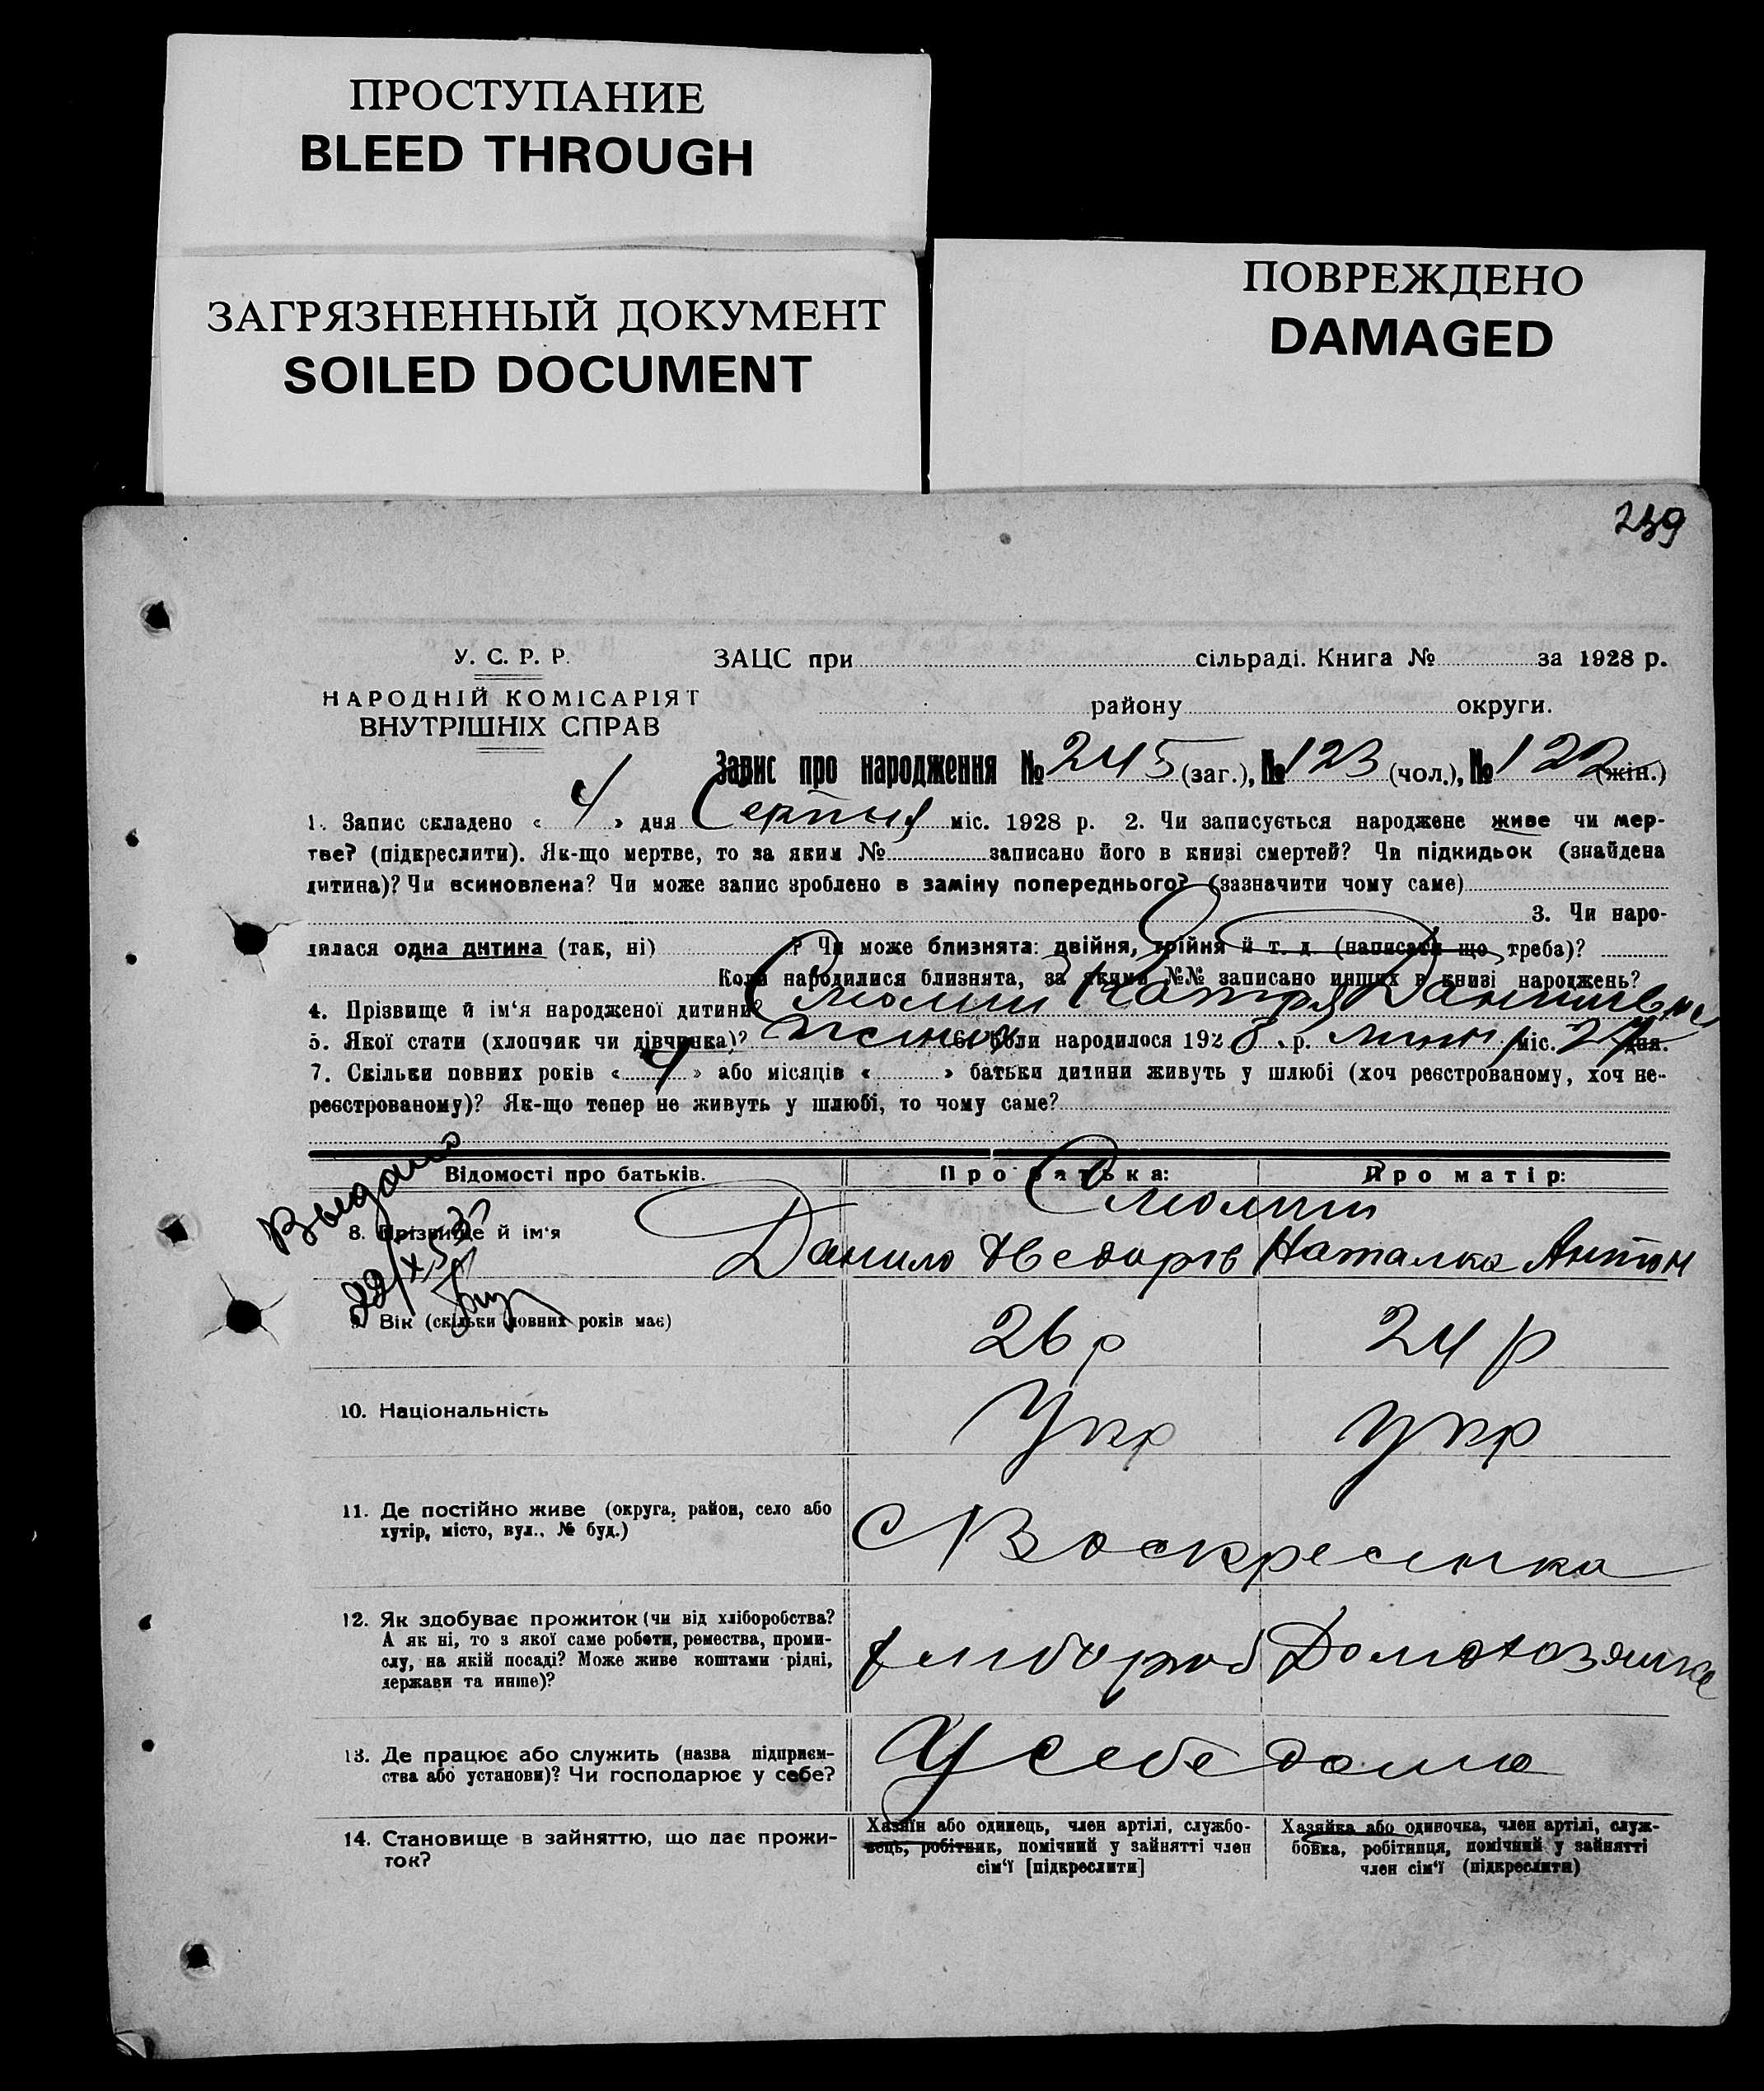 ПРОСТУПАНИЕ
BLEED THROUGH
ЗАГРЯЗНЕННЫЙ ДОКУМЕНТ
SOILED DOCUMENT
ПОВРЕЖДЕНО
DAMAGED
239
У. С. Р. Р.
НАРОДНІЙ КОМІСАРІЯТ
ВНУТРІШНІХ СПРАВ
ЗАЦС при сільраді. Книга № за 1928 р.
району округи.
Запис про народження № 245 (заг.), № 123 (чол.), № 122 (жін.)
1. Запис складено « 4 » дня Серпня міс. 1928 р. 2. Чи записується народжене живе чи мер-
тве? (підкреслити). Як-що мертве, то за яким № записано його в книзі смертей? Чи підкидьок (знайдена
дитина)? Чи всиновлена? Чи може запис зроблено в заміну попереднього? (зазначити чому саме)
3. Чи наро-
дилася одна дитина (так, ні) ? Чи може близнята: двійня, трійня й т. д. (написати що треба)?
Коли народилися близнята, за якими №№ записано инших в книзі народжень?
4. Прізвище й ім'я народженої дитини? Катря
5. Якої стати (хлопчик чи дівчинка)? 6. Коли народилося 1928 р. липня міс. 27 дня.
7. Скільки повних років « 4 » або місяців « » батьки дитини живуть у шлюбі (хоч реєстрованому, хоч не-
реєстрованому)? Як-що тепер не живуть у шлюбі, то чому саме?
Выдано
Відомості про батьків. Про батька: Про матір:
8. Прізвище й ім'я
Данило Федорів Наталка Антон
9. Вік (скільки повних років має) 26 р 24 р
10. Національність Укр Укр
11. Де постійно живе (округа, район, село або
хутір, місто, вул., № буд.)
С Воскресенка
12. Як здобуває прожиток (чи від хліборобства?
А як ні, то з якої саме роботи, ремества, проми-
слу, на якій посаді? Може живе коштами рідні,
держави та инше)?
Хлібороб Домохазяйка
13. Де працює або служить (назва підприєм-
ства або установи)? Чи господарює у себе?
У себе дома
14. Становище в зайняттю, що дає прожи-
ток?
Хазяїн або одинець, член артілі, службо-
вець, робітник, помічний у зайнятті член
сім'ї [підкреслити]
Хазяйка або одиночка, член артілі, служ-
бовка, робітниця, помічний у зайнятті
член сім'ї (підкреслити)